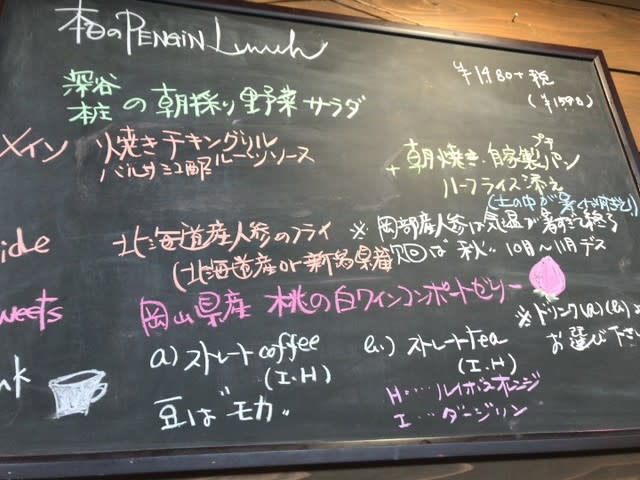 本日のPENGIN Lunch
¥1480+税
(¥1598)
深谷
本庄 の朝採り野菜サラダ
メイン 焼きチキングリル
バルサミコ酢 ルーツソース
+朝焼き・自家製プチパン
ハーフライス添え
(土の中が暑すぎ)
ide 北海道産人参のフライ ※岡部産人参は気温が暑すぎて終了
(北海道産or新潟県産 次回は"秋"10月〜11月デス
weets 岡山県産 桃の白ワインコンポートゼリー
※ドリンク(a)(い)
お選び下さい
nk a)ストレートcoffee
(I.H)
豆は"モカ"
い)ストレートtea
(I.H)
H…ルイボスオレンジ
I…ダージリン